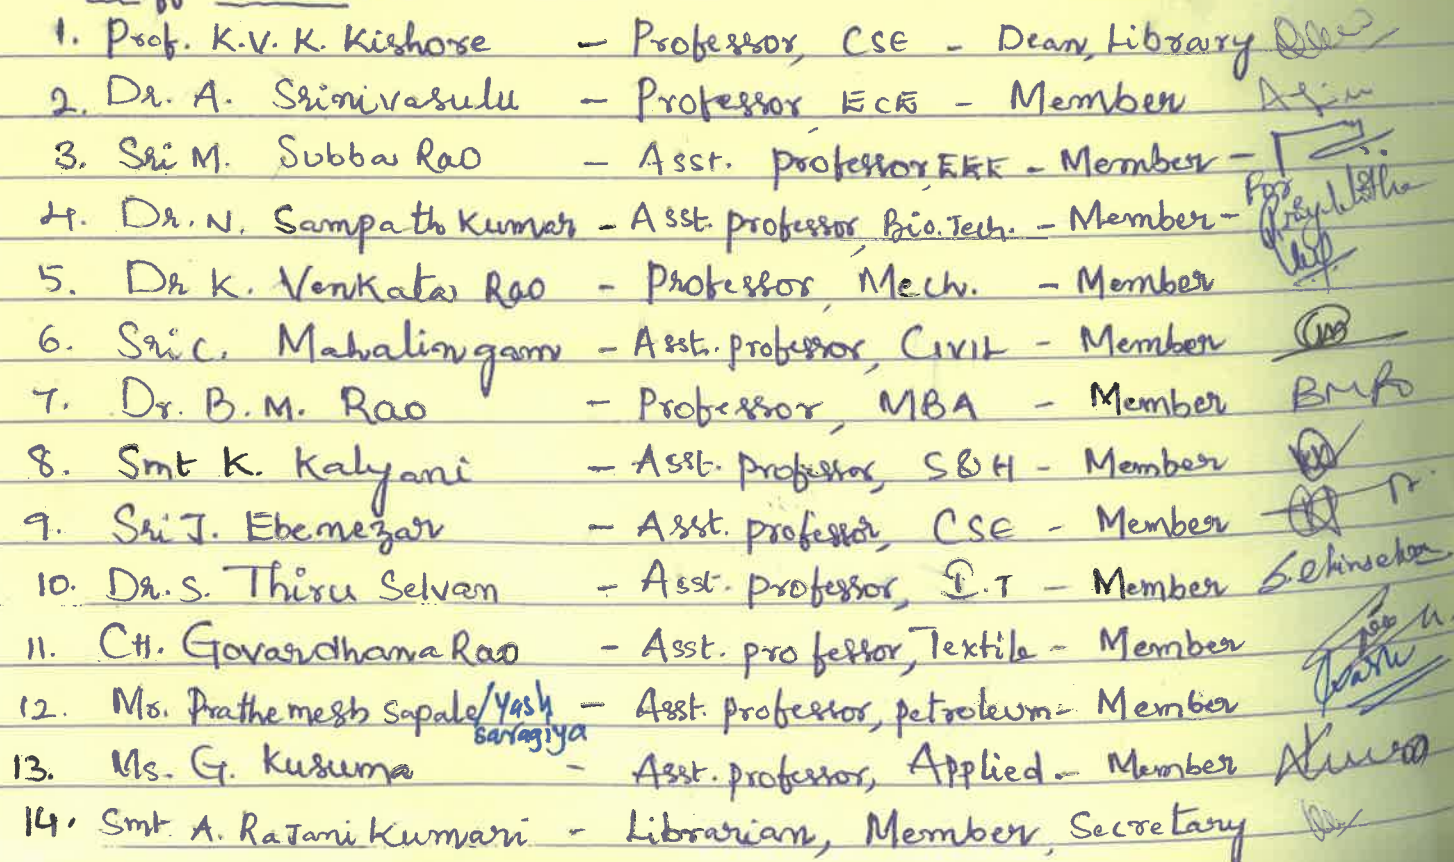 1. Prof. K.V. K. Kishore - Professor, CSE - Dean, Library
2. Dr. A. Srinivasulu - Professor, ECE - Member
3. Sri M. Subba Rao - Asst. professor, EEE - Member -
4. Dr. N. Sampath Kumar - Asst. professor, Bio. Tech. - Member - For
5. Dr K. Venkata Rao - Professor, Mech. - Member
6. Sri C. Mahalingam - Asst. professor, CIVIL - Member
7. Dr. B. M. Rao - Professor, MBA - Member BMR
8. Smt K. Kalyani - Asst. professor, S&H - Member
9. Sri J. Ebenezar - Asst. professor, CSE - Member
10. Dr. S. Thiru Selvan - Asst. professor, I.T - Member
11. CH. Govardhana Rao - Asst. professor, Textile - Member
12. Mr. Prathemesh Sapale/Yash - Asst. professor, petroleum - Member
savagiya
13. Ms. G. Kusuma - Asst. professor, Applied - Member
14. Smt A. Rajani Kumari - Librarian, Member, Secretary